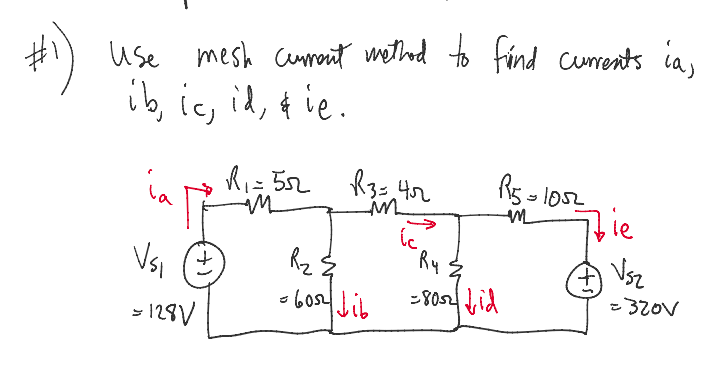 #1) Use mesh current method to find currents ia,
ib, ic, id, & ie.
ia R1=5Ω R3=4Ω R5=10Ω
ic ie
Vs1 + - R2 R4 + - Vs2
=128V =60Ω ib =80Ω id =320V